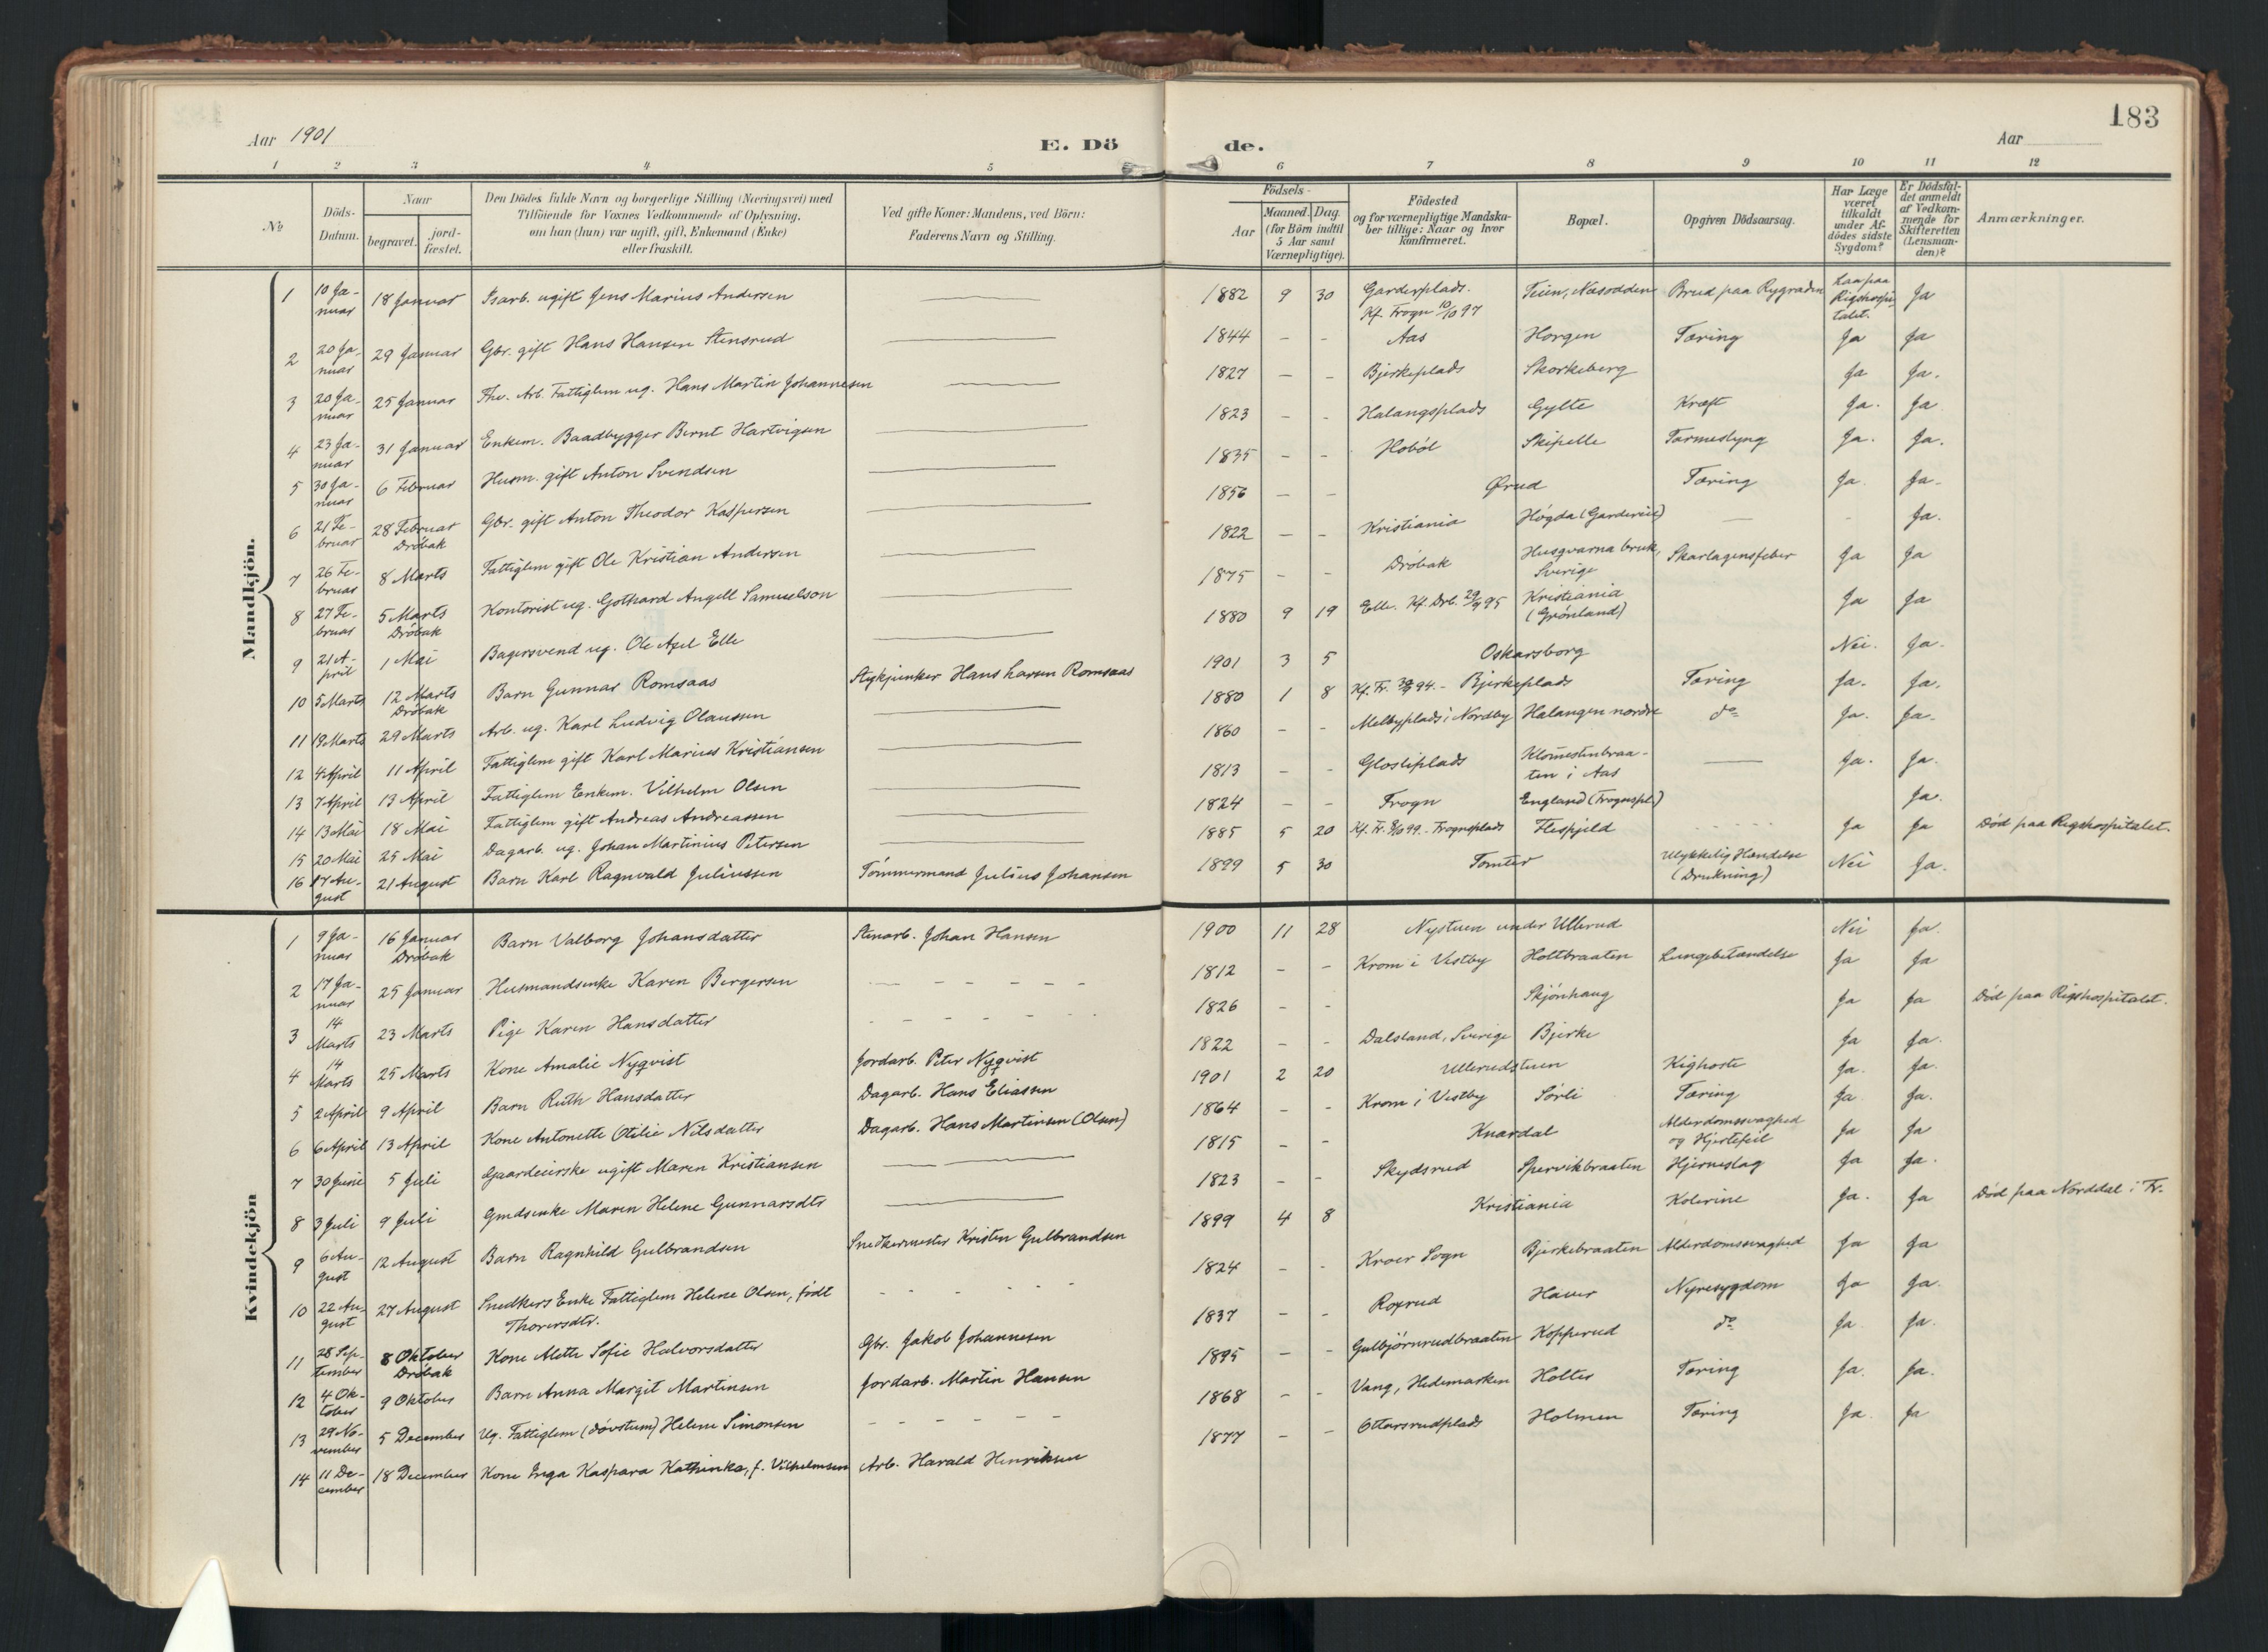 183
Aar 1901
E. Dö
de.
Aar
1 2 3 4 5 6 7 8 9 10 11 12
No
Döds-Datum.
Naar
begravet.
jord-fæstet.
Den Dödes fulde Navn og borgerlige Stilling (Næringsvei) med
Tilföiende for Voxnes Vedkommende af Oplysning,
om han (hun) var ugift, gift, Enkemand (Enke)
eller fraskilt.
Ved gifte Koner: Mandens, ved Börn:
Faderens Navn og Stilling.
Födsels-
Aar
Maaned. Dag.
(for Börn indtil
5 Aar samt
Værnepligtige).
Födested
og for værnepligtige Mandska-
ber tillige: Naar og hvor
konfirmeret.
Bopæl.
Opgiven Dödsaarsag.
Har Læge
været
tilkaldt
under Af-
dödes sidste
Sygdom?
Er Dödsfal-
det anmeldt
af Vedkom-
mende for
Skifteretten
(Lensman-
den)?
Anmærkninger.
Mandkjön.
1 10 Januar 18 Januar Isarb. ugift Jens Marius Andersen 1882 9 30 Garderplads. Kf. Frogn 10/10 97 Teien, Næsodden Brud paa Rygraden Laa paa Rigshospitalet. Ja
2 20 Januar 29 Januar Gbr. gift Hans Hansen Stensrud 1844 - - Aas Horgen Tæring Ja Ja
3 20 Januar 25 Januar Thv. Arb. Fattiglem ug. Hans Martin Johannesen 1827 - - Bjerkeplads Skorkeberg Ja Ja.
4 23 Januar 31 Januar Enkem. Baadbygger Bernt Hartvigsen 1823 - - Halangsplads Gylte Kræft Ja. Ja
5 30 Januar 6 Februar Husm. gift Anton Svendsen 1835 - - Höböl Skipelle Tarmeslyng Ja. Ja.
6 21 Februar 28 Februar Dröbak Gbr. gift Anton Theodor Kaspersen 1856 - - Ørud Tæring Ja. Ja.
7 26 Februar 8 Marts Fattiglem gift Ole Kristian Andersen 1822 - - Kristiania Högda (Garderveie) — - Ja.
8 27 Februar 5 Marts Dröbak Kontorist ug. Gothard Angell Samuelson 1875 - - Dröbak Husqvarna bruk, Sverige Skarlagensfeber Ja Ja
9 21 April 1 Mai Bagersvend ug. Ole Axel Elle 1880 9 19 Elle. Kf. Drb. 29/9 95 Kristiania (Grönland) Ja Ja
10 5 Marts 12 Marts Dröbak Barn Gunnar Romsaas Stykjunker Hans Larsen Romsaas 1901 3 5 Oskarsborg Nei. Ja.
11 19 Marts 29 Marts Arb. ug. Karl Ludvig Olaussen 1880 1 8 Kf. Fr. 94. - Bjerkeplads Tæring Ja. Ja.
12 4 April 11 April Fattiglem gift Karl Marius Kristiansen 1860 - - Melbyplads i Nordby Halangen nordre do Ja. Ja.
13 7 April 13 April Fattiglem Enkem. Vilhelm Olsen 1813 - - Glosliplads Klommestenbraaten i Aas — Ja. Ja.
14 13 Mai 18 Mai Fattiglem gift Andreas Andreassen 1824 - - Frogn England (Frognspl.) Ja.
15 20 Mai 25 Mai Dagarb. ug. Johan Martinius Petersen 1885 5 20 Kf. Fr. 8/10 99. - Frognsplads Flespjeld Ja Ja Död paa Rigshospitalet.
16 17 August 21 August Barn Karl Ragnvald Juliussen Tömmermand Julius Johansen 1899 5 30 Tomter Ulykkelig Hændelse (Drukning) Nei Ja.
Kvindekjön
1 9 Januar 16 Januar Dröbak Barn Valborg Johansdatter Stenarb. Johan Hansen 1900 11 28 Nystuen under Ullerud Nei Ja.
2 17 Januar 25 Januar Husmandsenke Karen Bergersen 1812 - - Krom i Vestby Holtbraaten Lungebetændelse Ja Ja
3 14 Marts 23 Marts Pige Karen Hansdatter 1826 - - Skjönhaug Ja Ja Död paa Rigshospitalet.
4 14 Marts 25 Marts Kone Amalie Nyqvist Jordarb. Peter Nyqvist 1822 - - Dalsland, Sverige Bjerke Ja Ja.
5 2 April 9 April Barn Ruth Hansdatter Dagarb. Hans Eliassen 1901 2 20 Ullerudstuen Kighoste Ja. Ja.
6 6 April 13 April Kone Antonette Otilie Nilsdatter Dagarb. Hans Martinsen (Olsen) 1864 - - Krom i Vestby Sörli Tæring Ja Ja.
7 30 Juni 5 Juli Gaardeierske ugift Maren Kristiansen 1815 - - Knardal Alderdomssvaghed og Hjertefeil Ja Ja
8 3 Juli 9 Juli Gmdsenke Maren Helene Gunnarsdtr 1823 - - Skydsrud Spervikbraaten Hjerneslag Ja Ja.
9 6 August 12 August Barn Ragnhild Gulbrandsen Snedkermester Kristen Gulbrandsen 1899 4 8 Kristiania Kolerine Ja. Ja Död paa Norddal i Fr.
10 22 August 27 August Snedkers Enke Fattiglem Helene Olsen, födt Thorersdtr. 1824 - - Kroer Sogn Bjerkebraaten Alderdomssvaghed Ja Ja
11 28 September 8 Oktober Dröbak Kone Alette Sofie Halvorsdatter Gbr. Jakob Johannesen 1837 - - Roxrud Haver Nyresygdom Ja Ja.
12 4 Oktober 9 Oktober Barn Anna Margit Martinsen Jordarb. Martin Hansen 1895 - - Gulbjörnrudbraaten Kopperud do Ja. Ja.
13 29 November 5 December Ug. Fattiglem (dövstum) Helene Simonsen 1868 - - Vang, Hedemarken Holter Tæring Ja. Ja.
14 11 December 18 December Kone Inga Kaspara Kathinka, f. Vilhelmsen Arb. Harald Henriksen 1877 - - Ottarsrudplads Holmen Tæring Ja. Ja